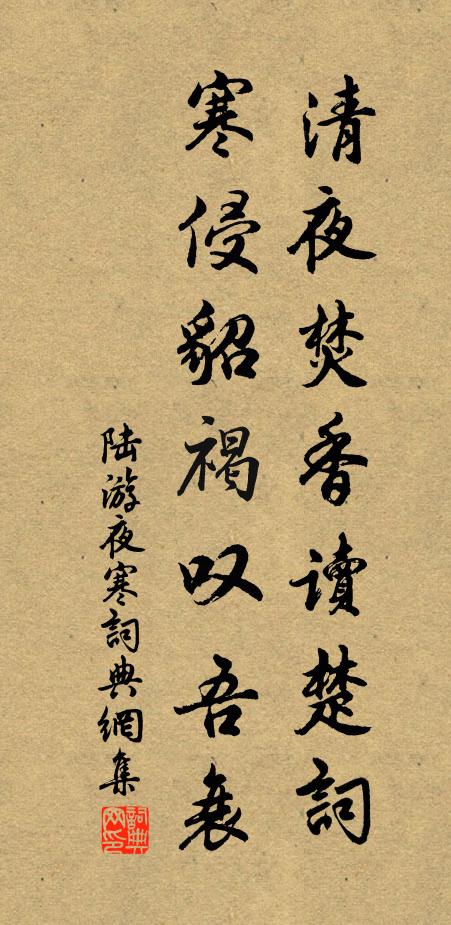 清夜焚香讀楚詞
寒侵貂褐叹吾衰
陆游夜寒詞典網集
詞典网印